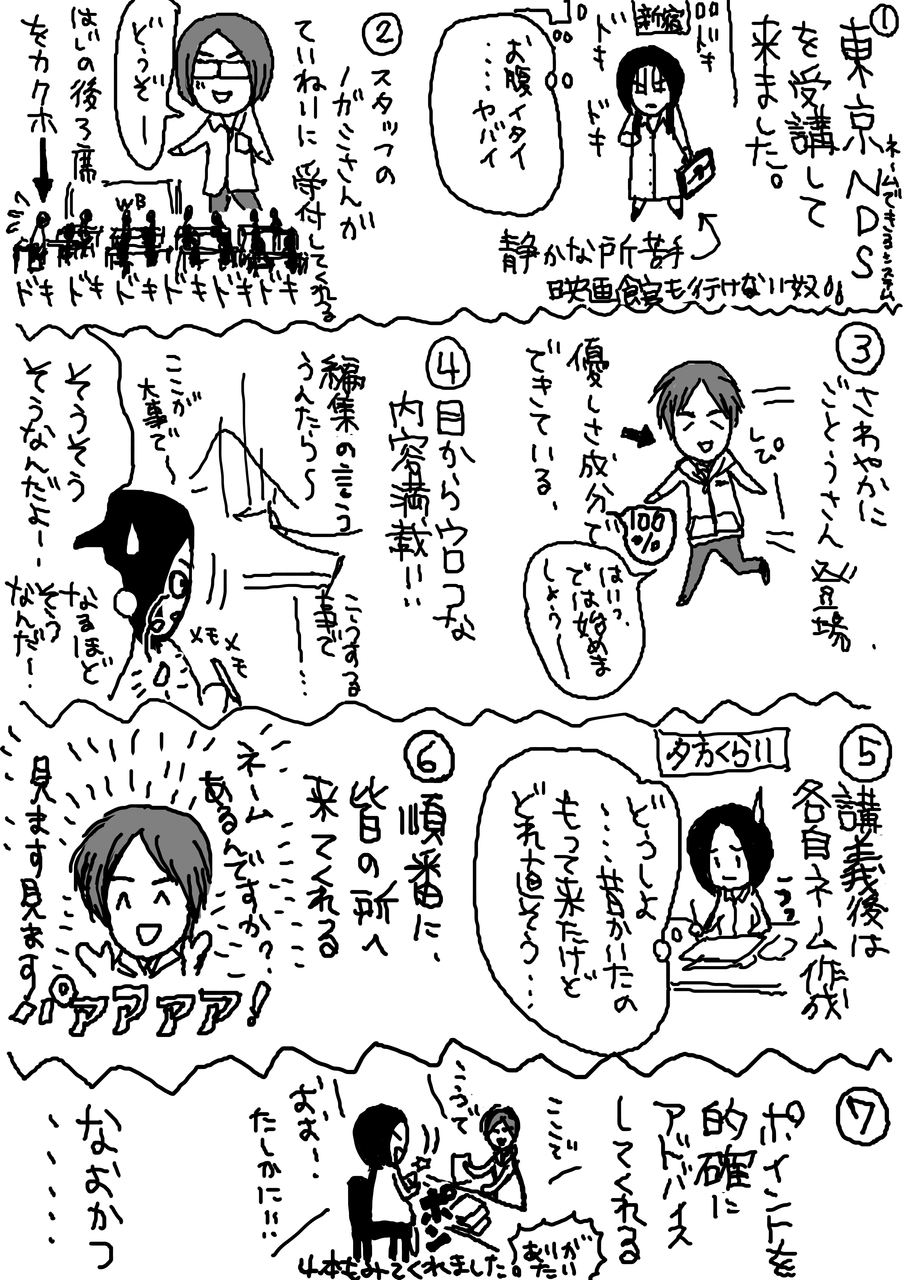 ①
東京NDS
ネームできるシステム
を受講して
来ました。
新宿
ドキ
ドキ
ドキ
お腹イタイ
....ヤバイ
静かな所苦手
映画館も行けない奴。
②
スタッフの
ノガミさんが
ていねいに受付してくれる
どうぞー
はじの後ろ席
をカクホ
WB
ドキドキドキドキドキドキ
③
さわやかに
ごとうさん登場
優しさ成分で
できている。
100%
はいっ、
では始めま
しょうー
④
目からウロコな
内容満載!!
編集の言う
うんたら〜
ここが
大事で〜
こうする
事で
....
そうそう
そうなんだよー
メモメモ
なるほど
そう
なんだー
⑤
講義後は
各自ネーム作成
夕方くらい
どうしよ
...昔かいたの
もって来たけど
どれ直そう...
⑥
順番に、
皆の所へ
来てくれる
ネーム
あるんですか?
見ます見ます
パアアアア!
⑦
ポイントを
的確に
アドバイス
してくれる
ここでー
こうで
おおー
たしかに!!
4本もみてくれました。
ありが
たい
なおかつ